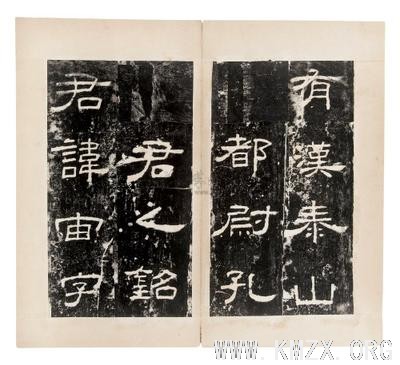 有漢泰山
都尉孔
君之銘
君諱宙字